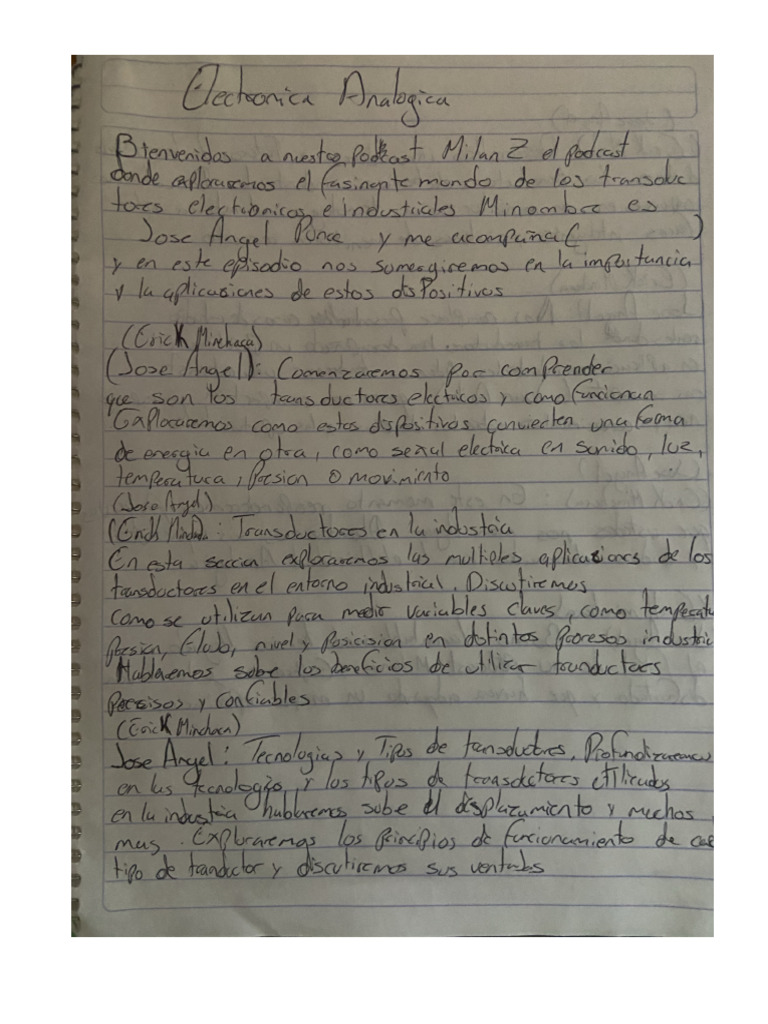 Electronica Analogica
Bienvenidos a nuestro Podkast MilanZ el podcast
donde exploraremos el fasinante mundo de los transduc
tores electronicos e industriales Mi nombre es
Jose Angel Ponce y me acompaña ( )
y en este episodio nos sumergiremos en la importancia
y la aplicasiones de estos disPositivos
(Erick Minchaca)
(Jose Angel): Comenzaremos por comprender
que son los transductores electricos y como funcionan
Exploraremos como estos dispositivos convierten una forma
de energia en otra, como señal electrica en sonido, luz,
temperatura, presion o movimiento
(Jose Angel)
(Erick : Transductores en la industria
En esta seccion exploraremos las multiples aplicaciones de los
transductores en el entorno industrial. Discutiremos
como se utilizan para medir variables claves, como temperatu
presion, flujo, nivel y posicision en distintos procesos industri
Hablaremos sobre los beneficios de utilizar tranductores
precisos y confiables
(Erick Minchaca)
Jose Angel: Tecnologias y Tipos de transductores. Profundizaremos
en las tecnologias y los tipos de transductores utilizados
en la industria hablaremos sobe el displazamiento y muchos
mas. Exploraremos los principios de funcionamiento de cad
tipo de tranductor y discutiremos sus ventabs